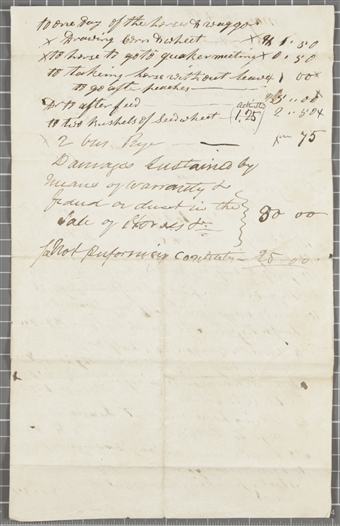 to one day of the horse & waggon
x Drawing corn & wheat x $ 1 . 50
x to horse to go to quaker meeting x 0 . 50
to taking horse without leave 1 00 x
to go aft peaches —
Dr to after feed — 5 . 00
to two bushels of Seedwheet (1.25) 2 . 50
x 2 bus. Rye — 75
Damages Sustained by
Means of warranty &
fraud or deceit in the
Sale of Horses &c 30 00
for Not Performing Contract 25 00